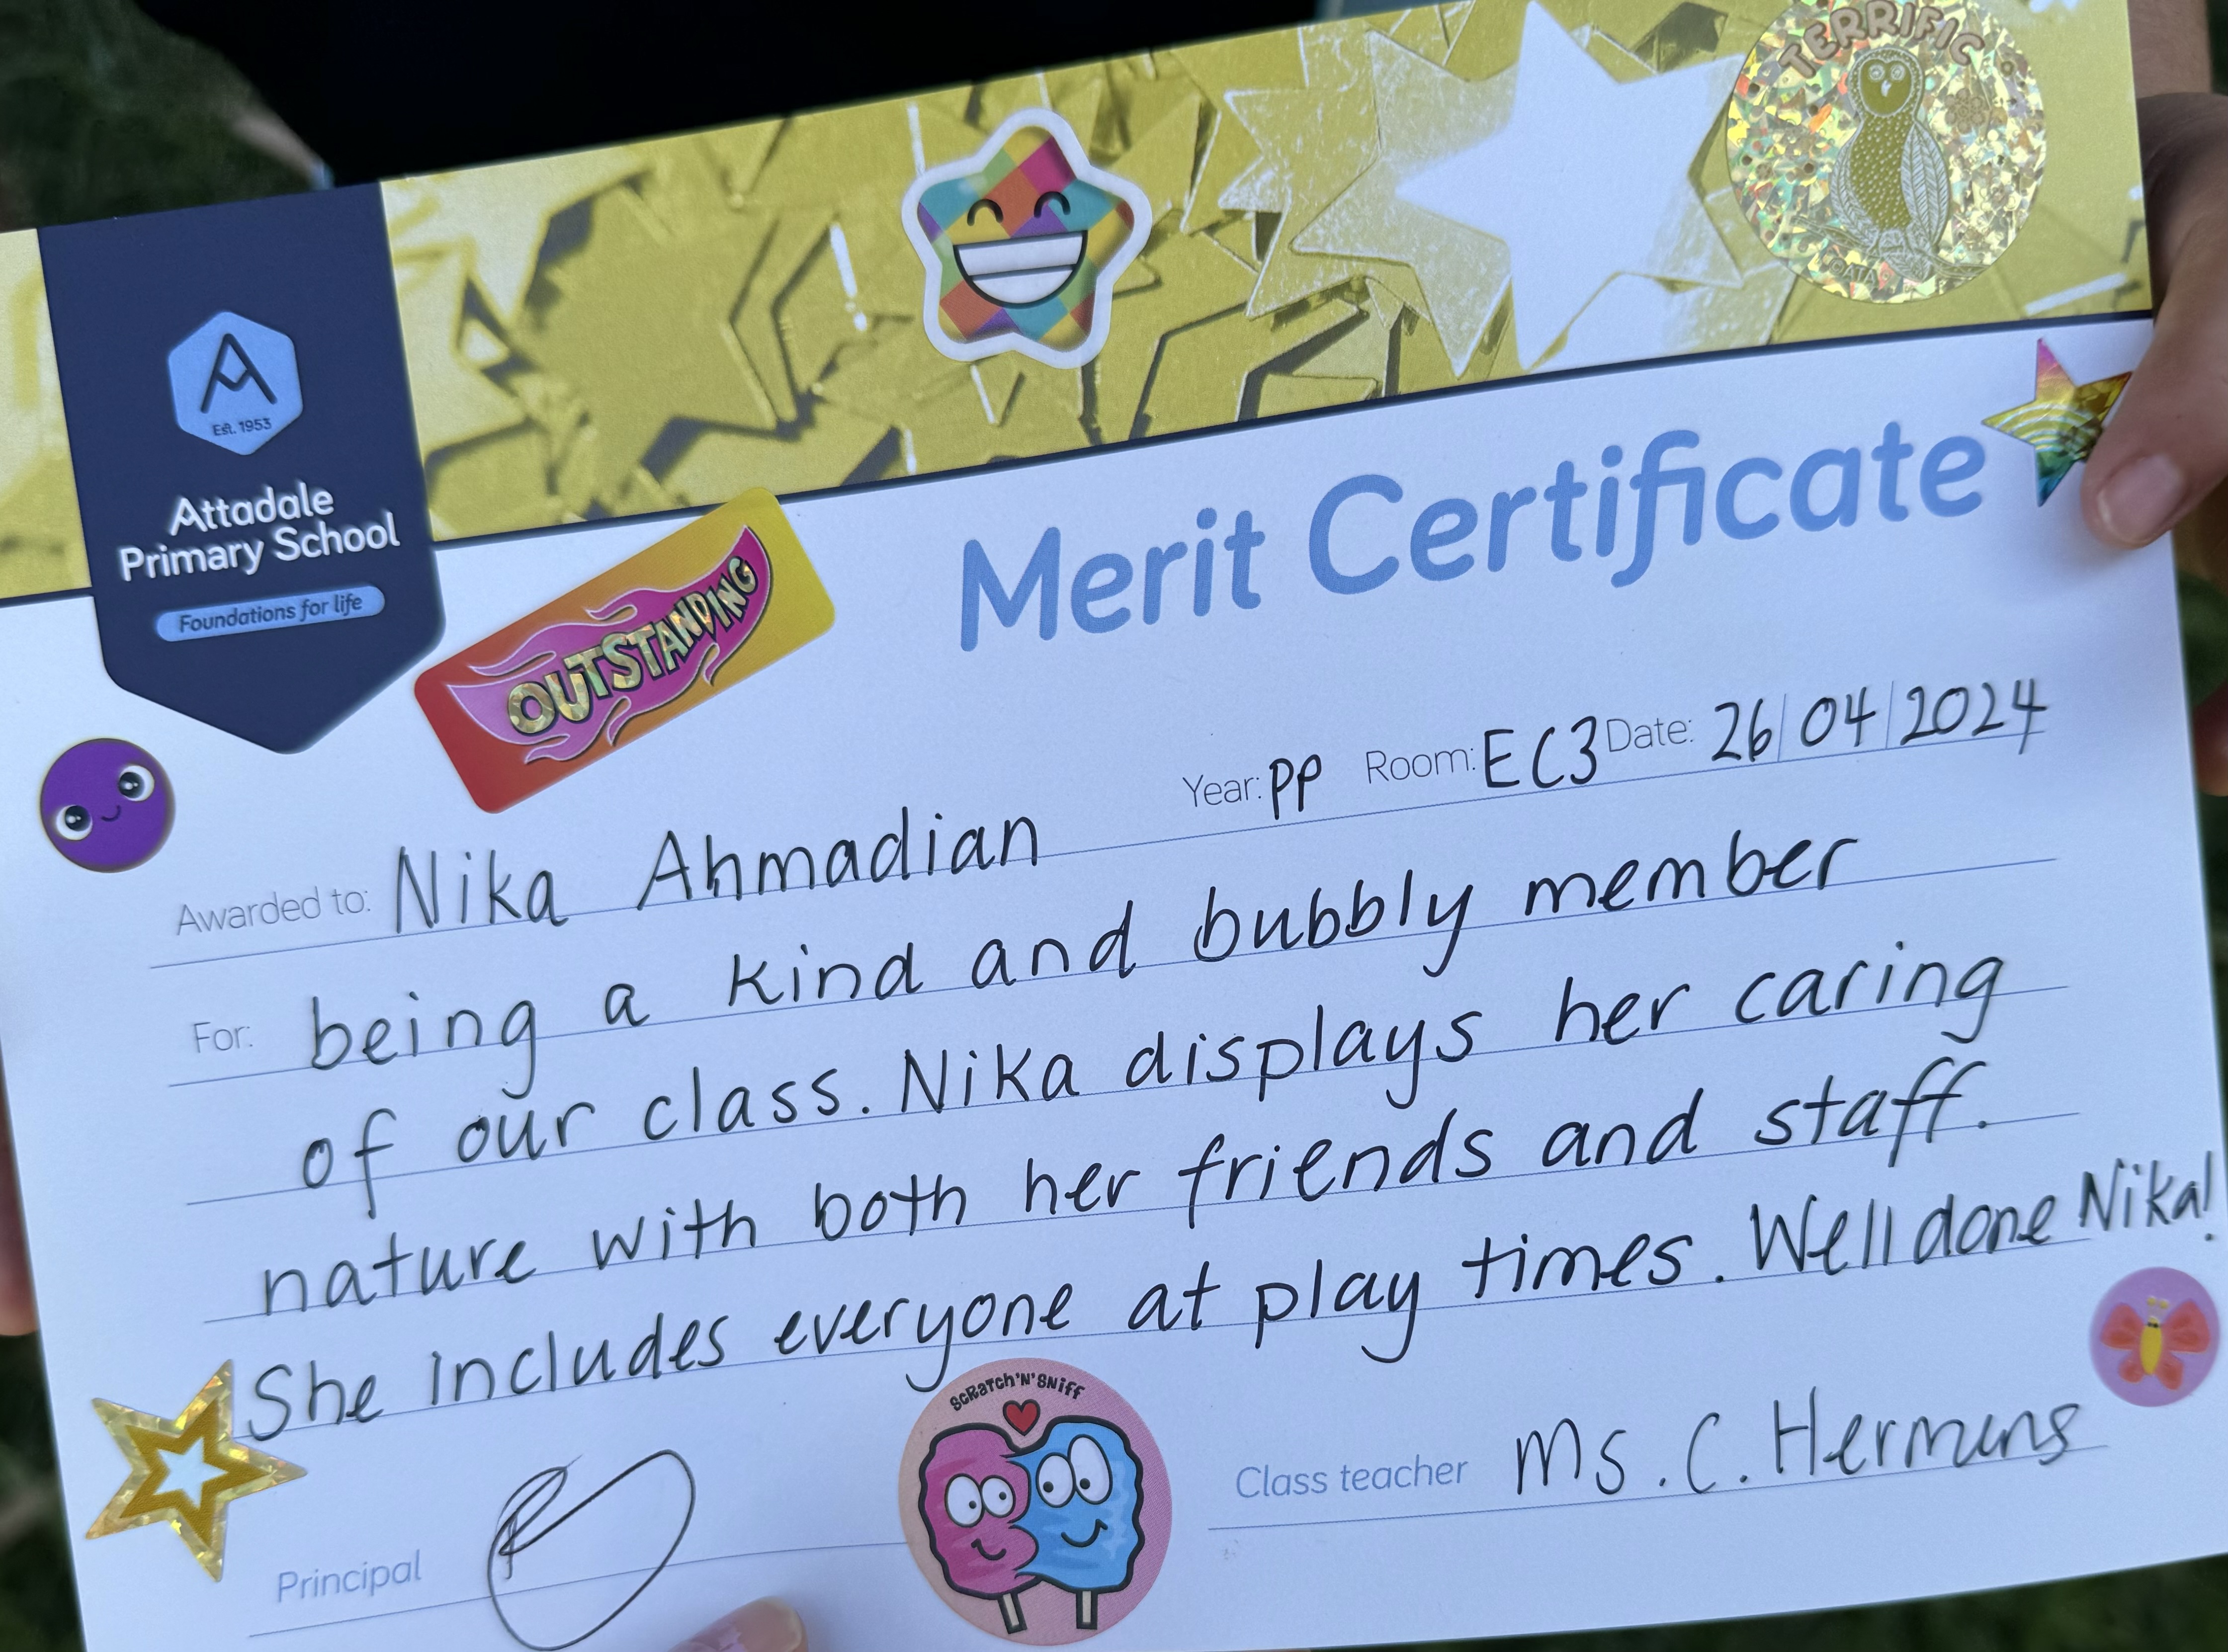 TERRIFIC
A
Est. 1953
Attadale
Primary School
Foundations for life
OUTSTANDING
Merit Certificate
Year: PP Room: EC3 Date: 26/04/2024
Awarded to: Nika Ahmadian
For: being a kind and bubbly member
of our class. Nika displays her caring
nature with both her friends and staff.
She includes everyone at play times. Well done Nika!
SCRATCH'N'SNIFF
Principal
Class teacher Ms. C. Hermans